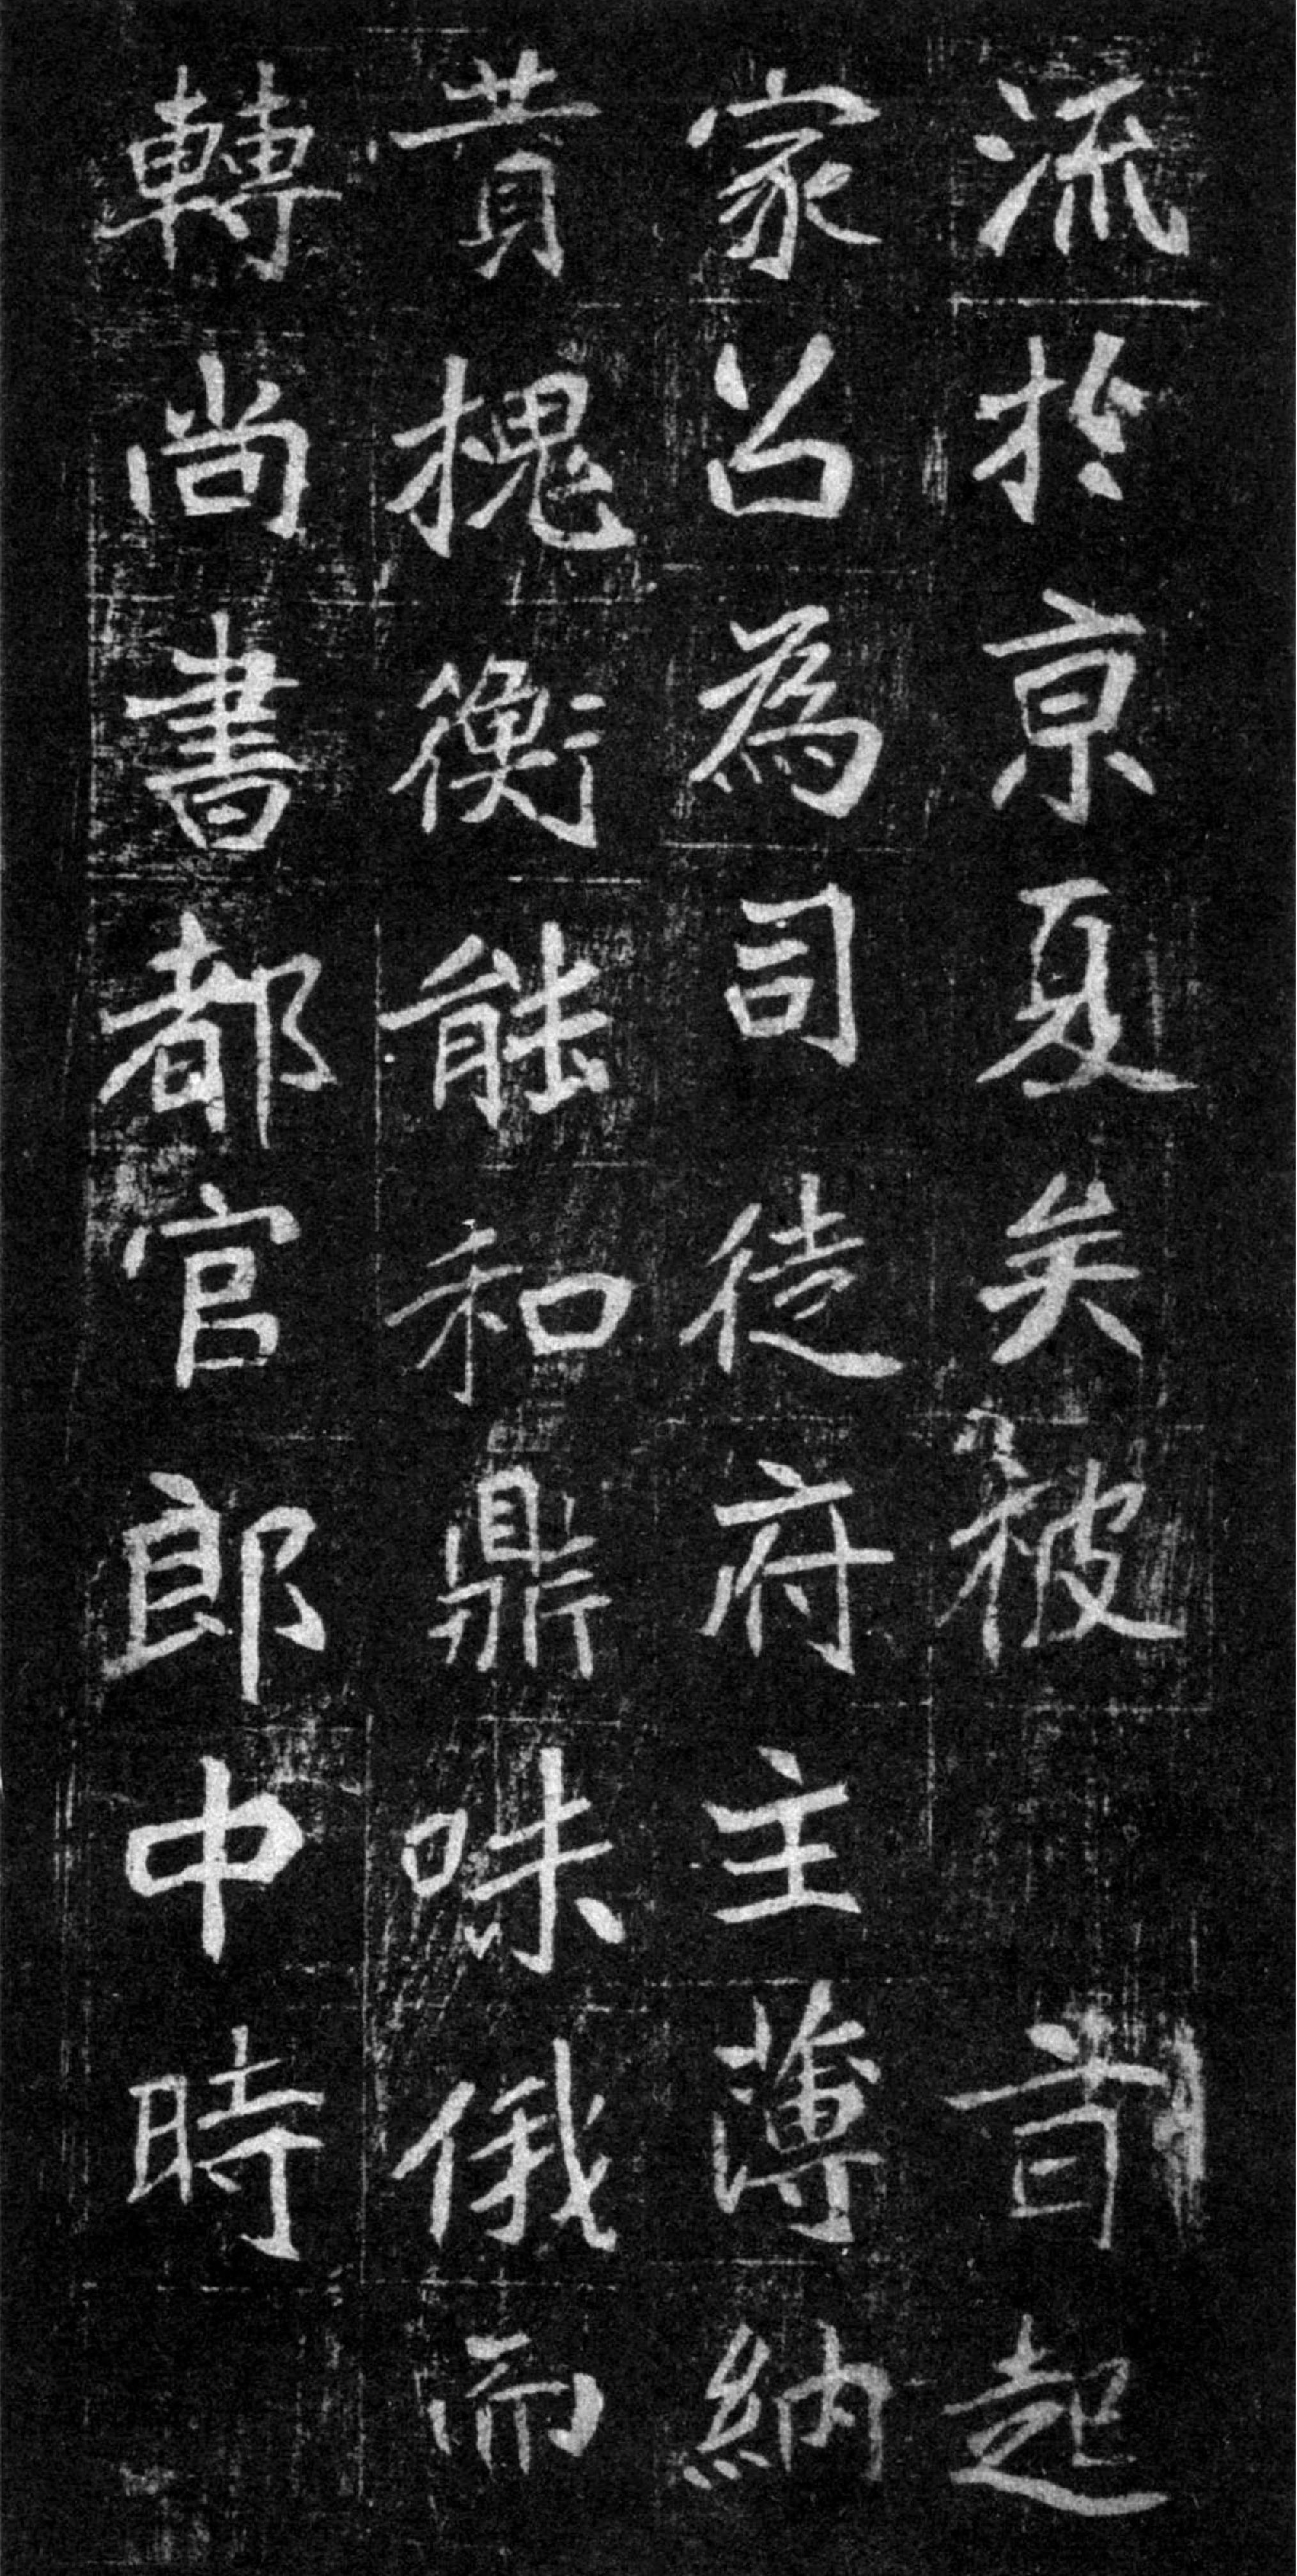 流於京夏矣被　旨起
家召為司徒府主薄納
賁槐衡能和鼎味俄而
轉尚書都官郎中時